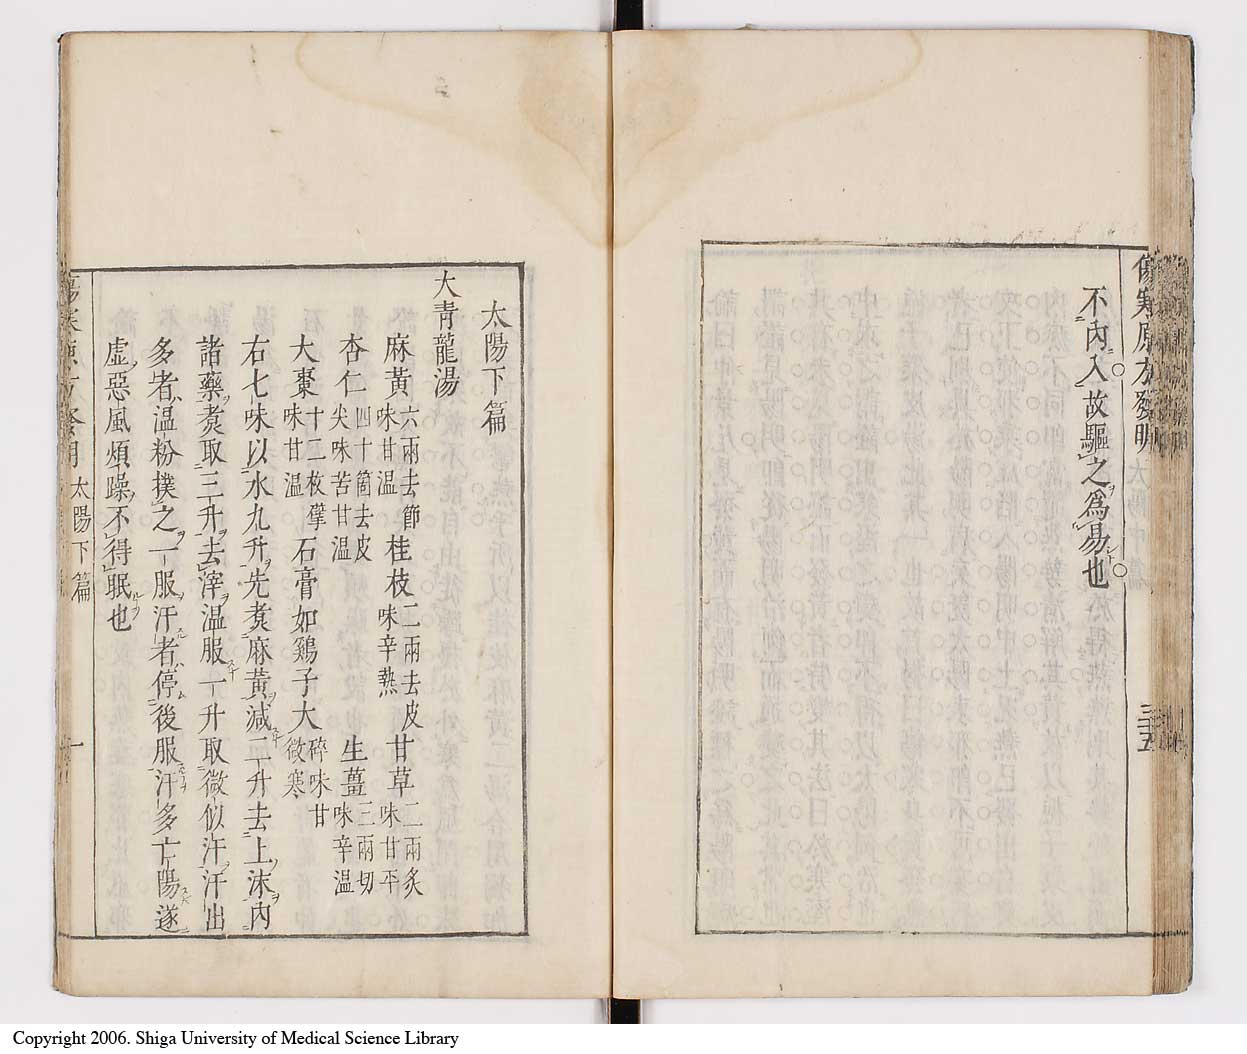 傷寒原方發明 太陽中篇 三十五
不內入故驅之爲易也
太陽下篇
大青龍湯
麻黃六兩去節味甘溫桂枝二兩去皮味辛熱甘草二兩炙味甘平
杏仁四十箇去皮尖味苦甘溫 生薑三兩切味辛溫
大棗十二枚擘味甘溫石膏如鷄子大碎味甘微寒
右七味以水九升先煑麻黃減二升去上沫內
諸藥煑取三升去滓溫服一升取微似汗汗出
多者溫粉撲之一服汗者停後服汗多亡陽遂
虛惡風煩躁不得眠也
傷寒原方發明 太陽下篇 一
Copyright 2006. Shiga University of Medical Science Library